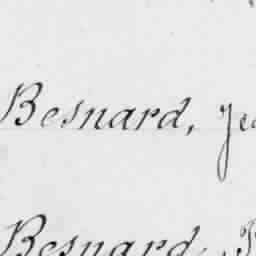 Besnard, Je
Besnard,